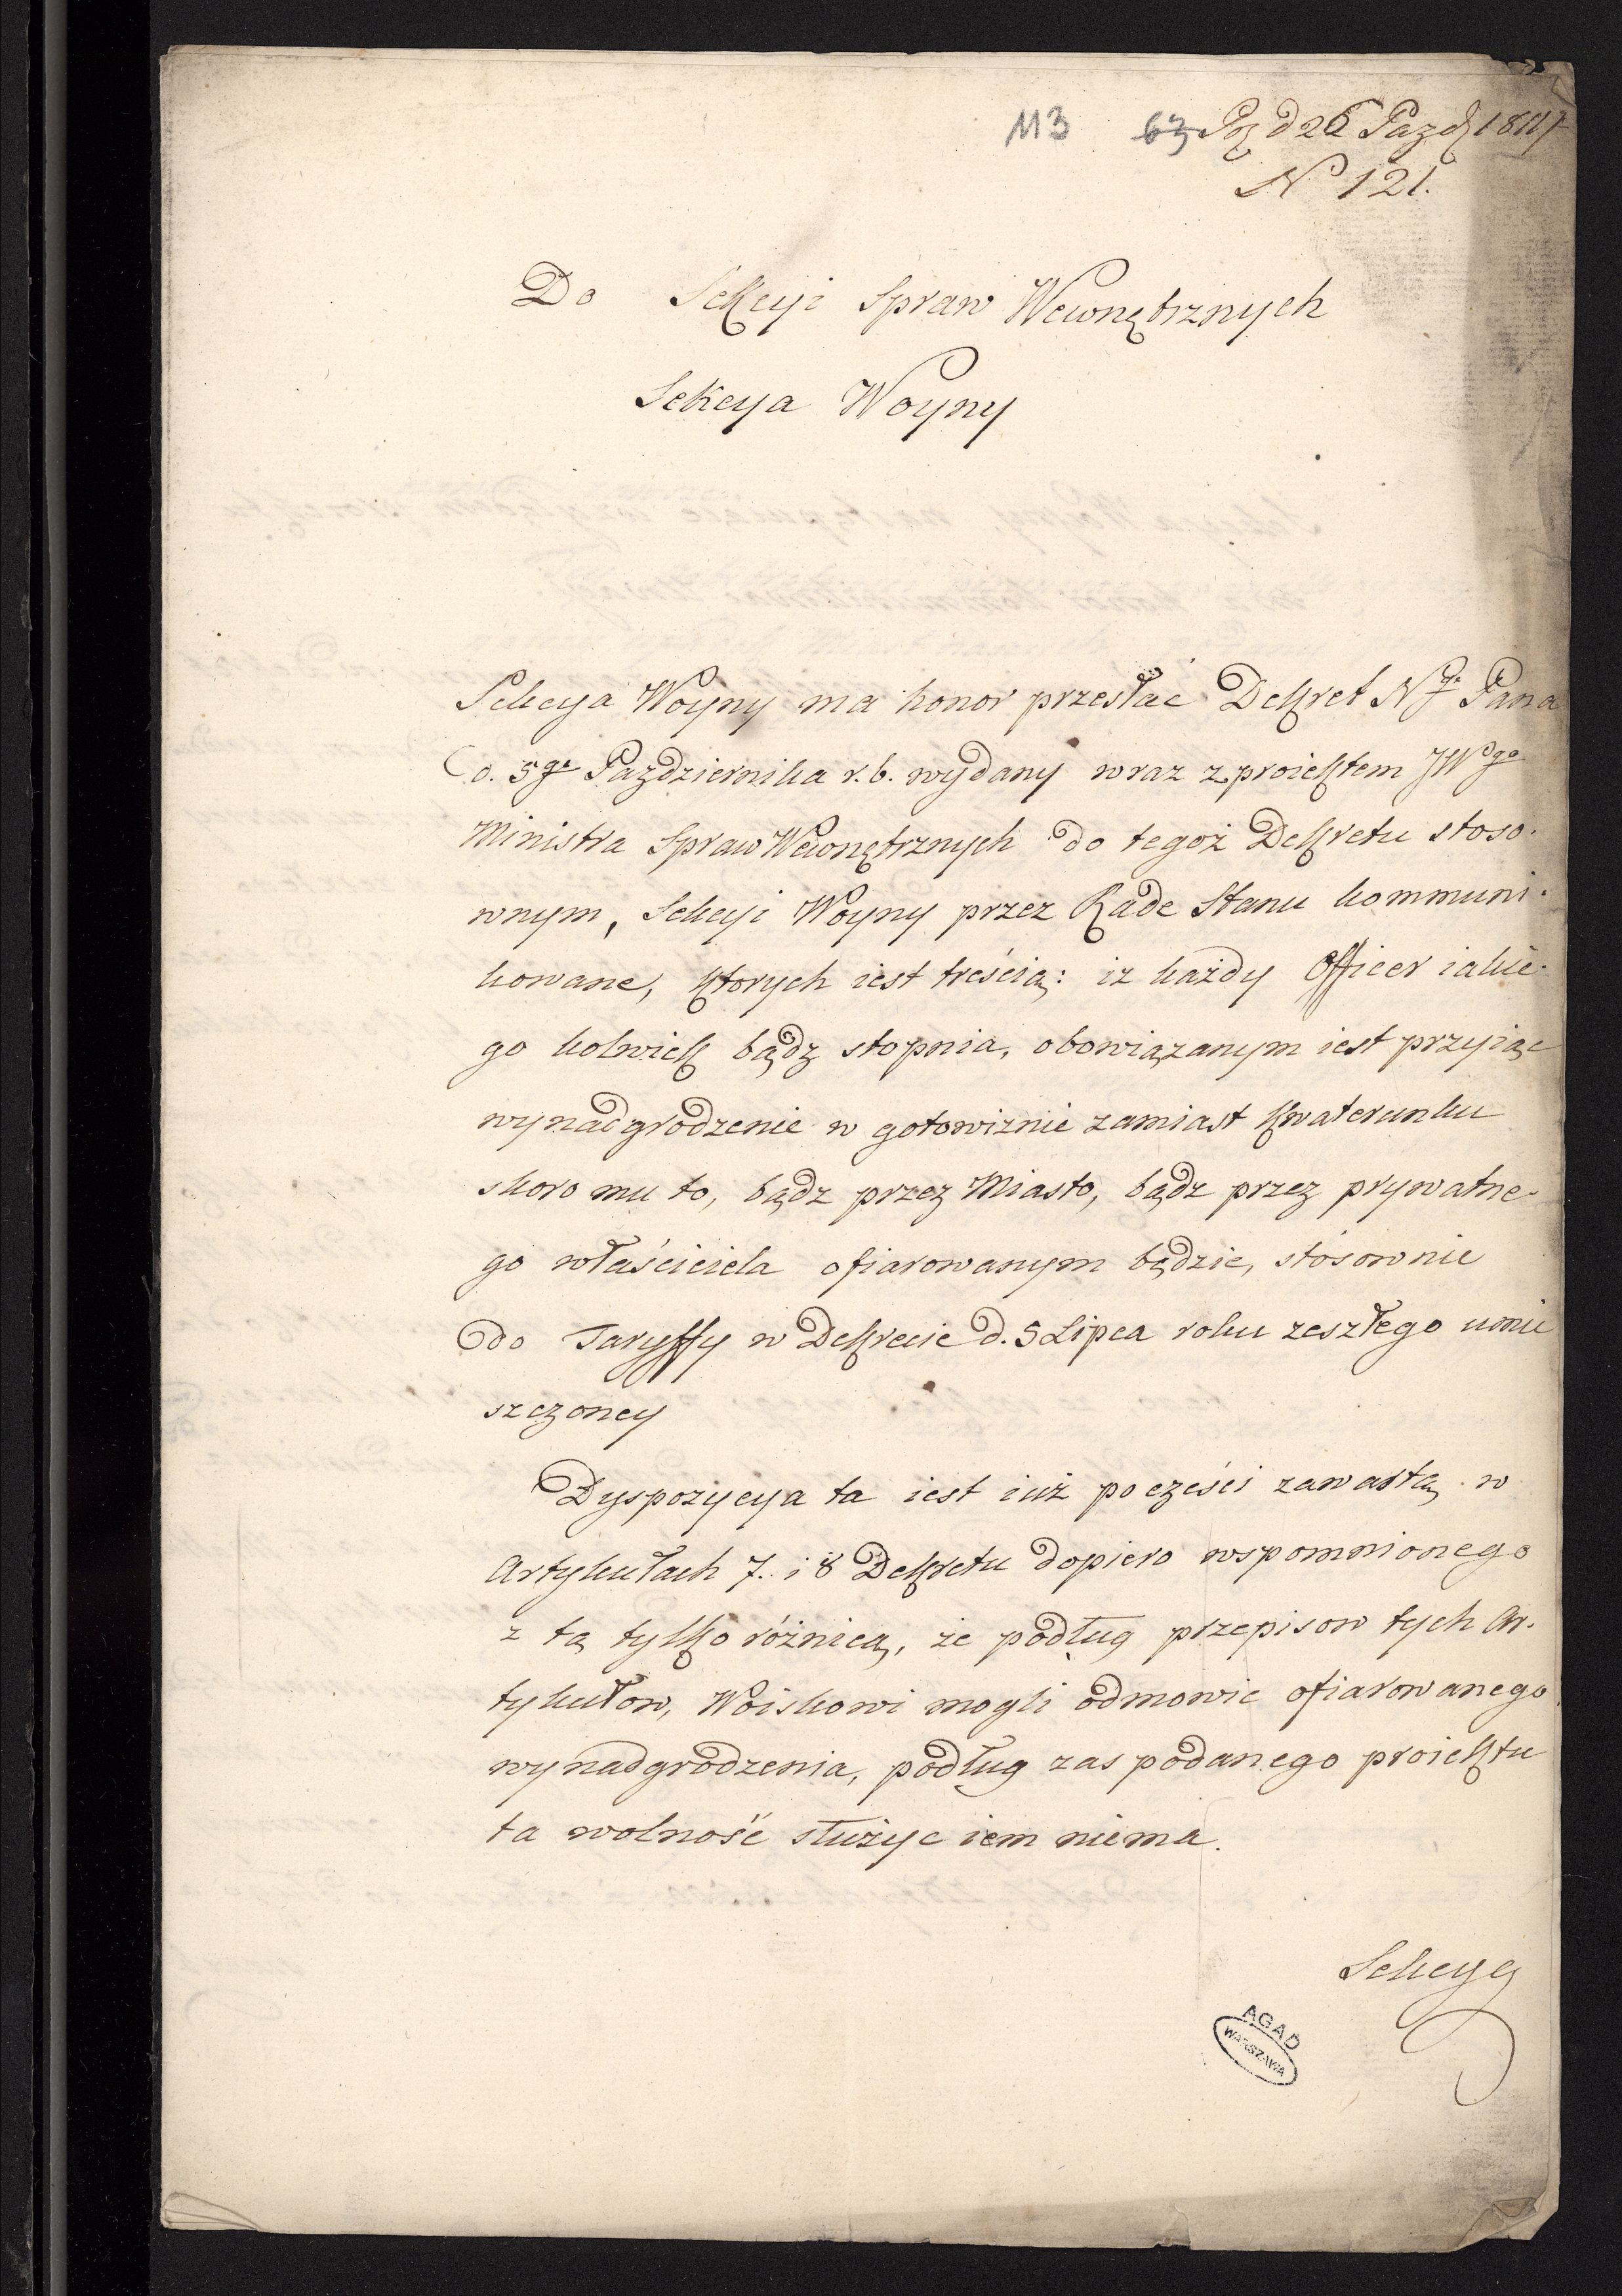 113 63 d 26 Pazdz 181
N° 121.
Do Sekcyi Spraw Wewnętrznych
Sekcya Woyny
Sekcya Woyny ma honor przesłać Dekret Ngo Pana
d. 5go Pazdziernika r. b. wydany wraz z proiektem JWgo
Ministra Spraw Wewnętrznych do tegoż Dekretu stoso-
wnym, Sekcyi Woyny przez Radę Stanu kommuni-
kowane, ktorych iest treścią: iż każdy Officer iakie-
go kolwiek bądz stopnia, obowiązanym iest przyiąc
wynadgrodzenie w gotowiznie zamiast kwaterunku
skoro mu to, bądz przez Miasto, bądz przez prywatne-
go właściciela ofiarowanym będzie, stósownie
do Taryffy w Dekrecie d. 5 Lipca roku zeszłego umie
szczoney
Dyspozycya ta iest iuż po części zawartą w
Artykułach 7. i 8 Dekretu dopiero wspomnionego
z tą tylko różnicą, że podług przepisow tych Ar-
tykułow, Woiskowi mogli odmowic ofiarowanego
wynadgrodzenia, podług zas podanego proiektu
ta wolność służyc iem niema.
Sekcya
AGAD
WARSZAWA